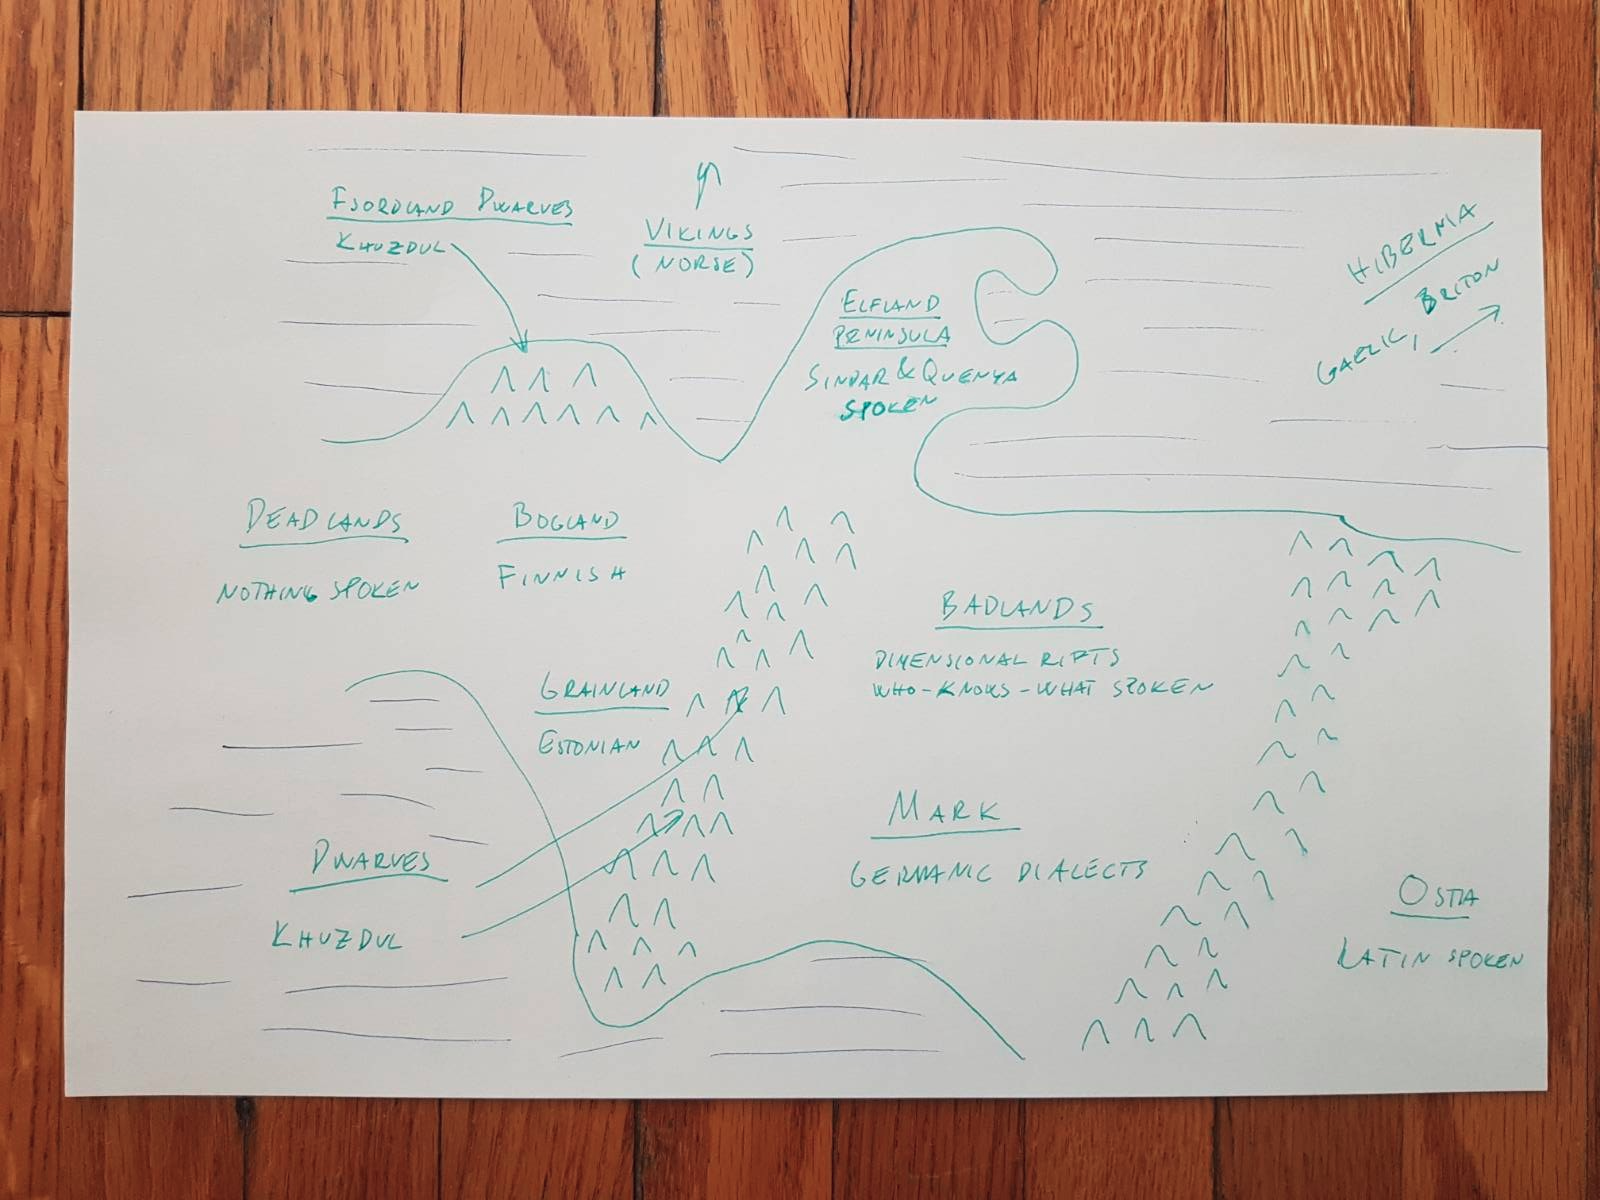 FJORDLAND DWARVES
KHUZDUL
VIKINGS
(NORSE)
HIBERNIA
GAELIC, BRITON
ELFLAND
PENINSULA
SINDAR & QUENYA
SPOKEN
DEADLANDS
NOTHING SPOKEN
BOGLAND
FINNISH
BADLANDS
DIMENSIONAL RIFTS
WHO-KNOWS-WHAT SPOKEN
GRAINLAND
ESTONIAN
MARK
GERMANIC DIALECTS
DWARVES
KHUZDUL
OSTIA
LATIN SPOKEN